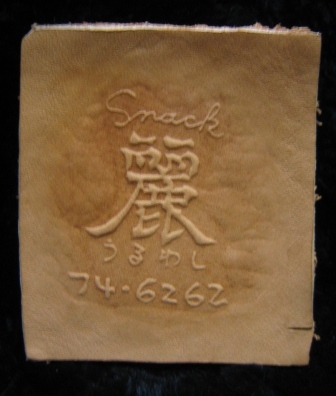 Snack
麗
うるわし
74・6262